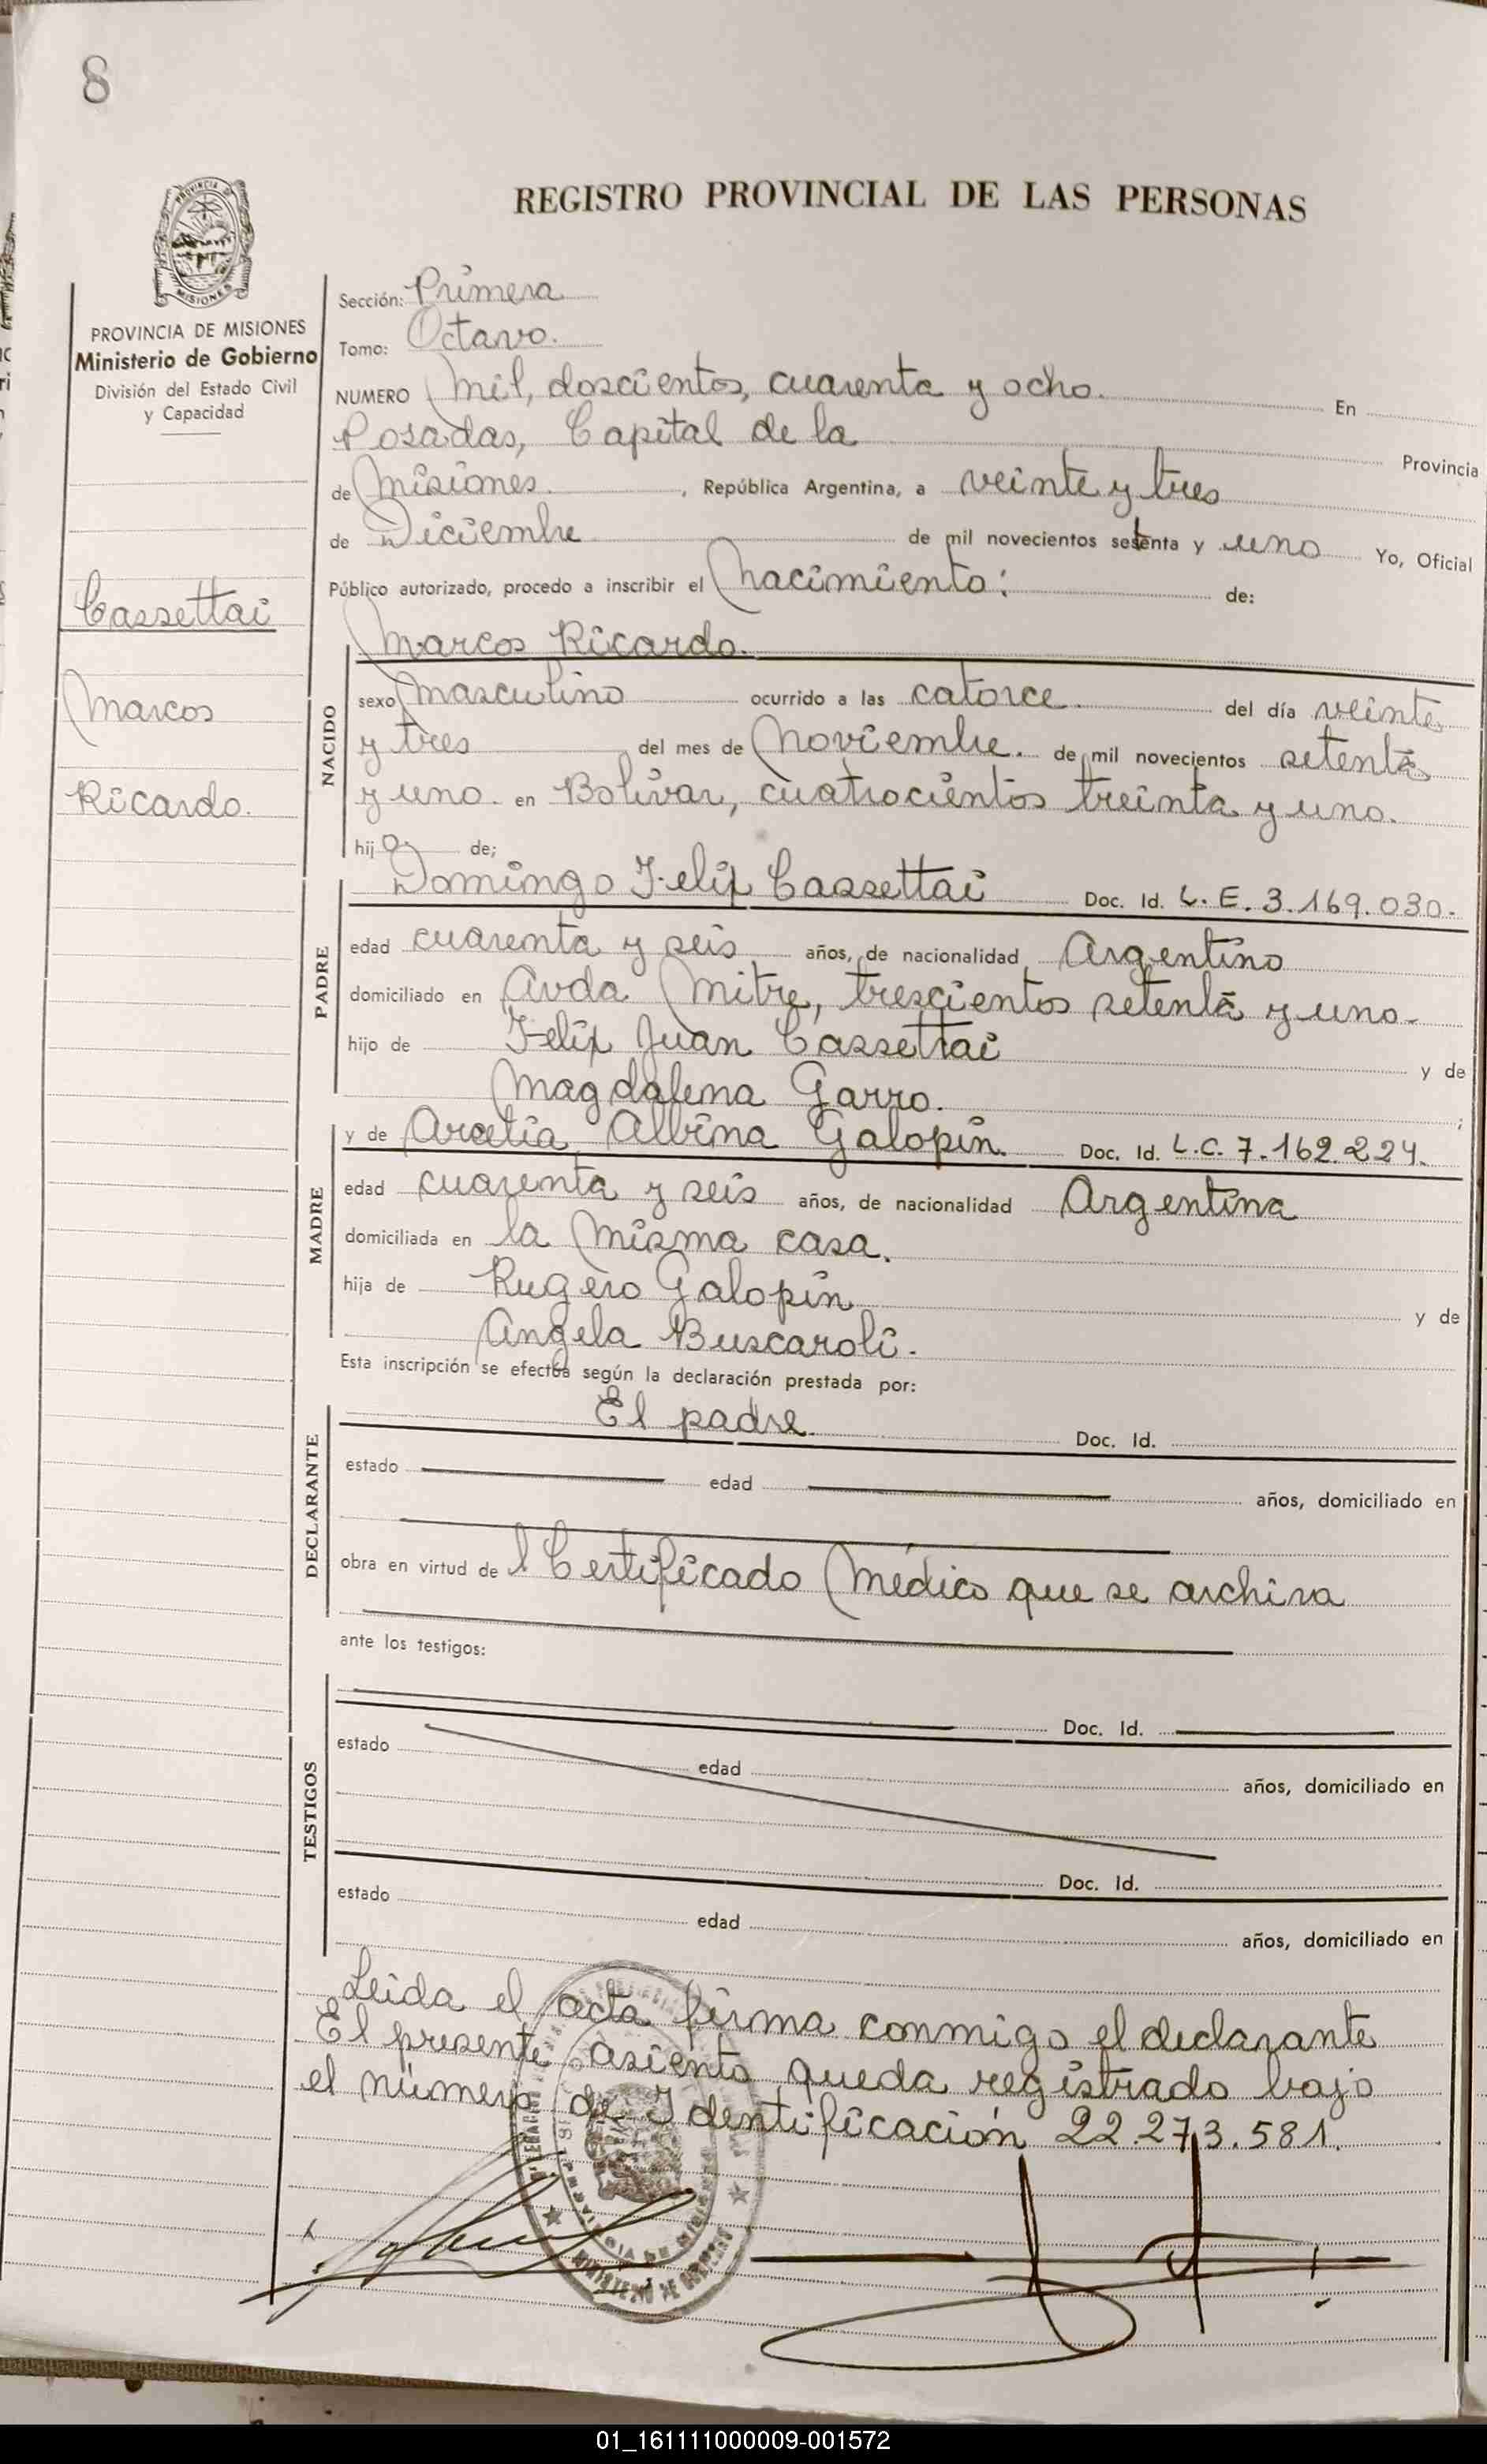 8
REGISTRO PROVINCIAL DE LAS PERSONAS
PROVINCIA DE MISIONES
Ministerio de Gobierno
División del Estado Civil
y Capacidad
Cassettai
Marcos
Ricardo.
Sección: Primera
Tomo: Octavo.
NUMERO Mil, doscientos, cuarenta y ocho. En
Posadas, Capital de la Provincia
de Misiones. , República Argentina, a veinte y tres
de Diciembre de mil novecientos setenta y uno Yo, Oficial
Público autorizado, procedo a inscribir el Nacimiento: de:
Marcos Ricardo.
NACIDO
sexo Masculino ocurrido a las catorce. del día veinte
y tres del mes de Noviembre. de mil novecientos setenta
y uno. en Bolívar, cuatrocientos treinta y uno.
hijo de;
Domingo Felix Cassettai Doc. Id. L. E. 3.169.030.-
PADRE
edad cuarenta y seis años, de nacionalidad Argentino
domiciliado en Avda Mitre, trescientos setenta y uno.
hijo de Felix Juan Cassettai y de
Magdalena Garro. ;
y de Arcelia Albina Galopin. Doc. Id. L.C. 7.162.224.
MADRE
edad cuarenta y seis años, de nacionalidad Argentina
domiciliada en la Misma casa.
hija de Rugero Galopin y de
Angela Buscaroli.
Esta inscripción se efectúa según la declaración prestada por:
El padre. Doc. Id.
DECLARANTE
estado edad años, domiciliado en
obra en virtud del Certificado Médico que se archiva
ante los testigos:
Doc. Id.
TESTIGOS
estado edad años, domiciliado en
Doc. Id.
estado edad años, domiciliado en
Leida el acta firma conmigo el declarante
El presente asiento queda registrado bajo
el número de Identificación 22.273.581.
01_161111000009-001572